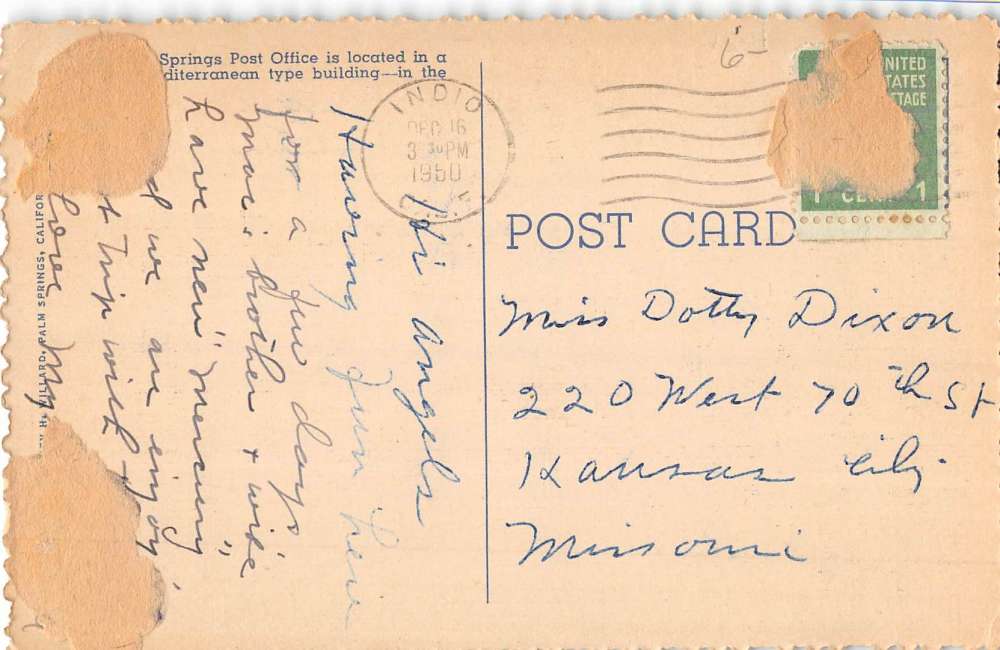 Springs Post Office is located in a
diterranean type building—in the
INDIO
DEC 16
3 30 PM
1950
6-
NITED
TATES
TAGE
1 CEN 1
POST CARD
Miss Dotty Dixon
220 West 70th St
Kansas City
Missouri
Hi Angels
Having fun here
for a few days
mar's brother + wife
have new "mercury"
d we are enjoy
t trip with
Love My
H. WILLARD, PALM SPRINGS, CALIFOR